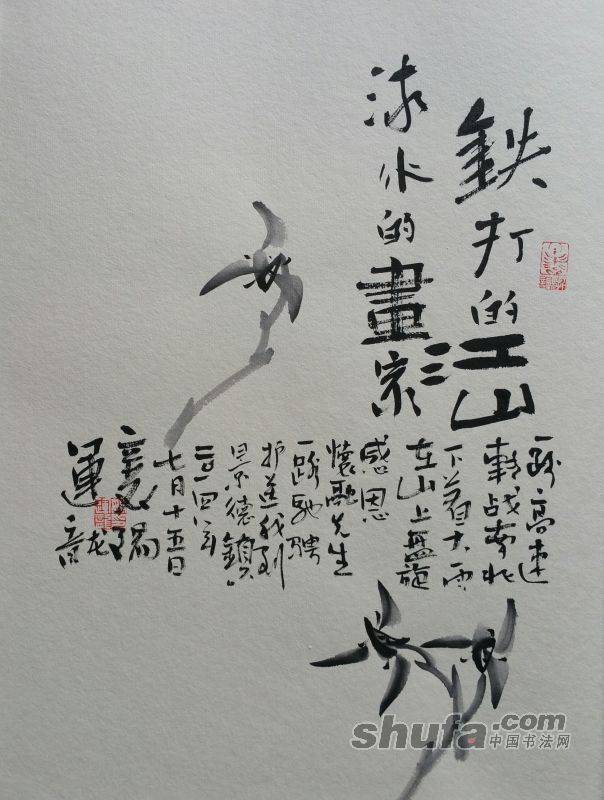 鉄打的江山
流水的畫家
一路高速
轉战南北
下着大雨
在山上盘旋
感恩
懷融先生
一路驰骋
护送我到
景德鎮
二〇一四年
七月十五日
shufa.com
中国书法网